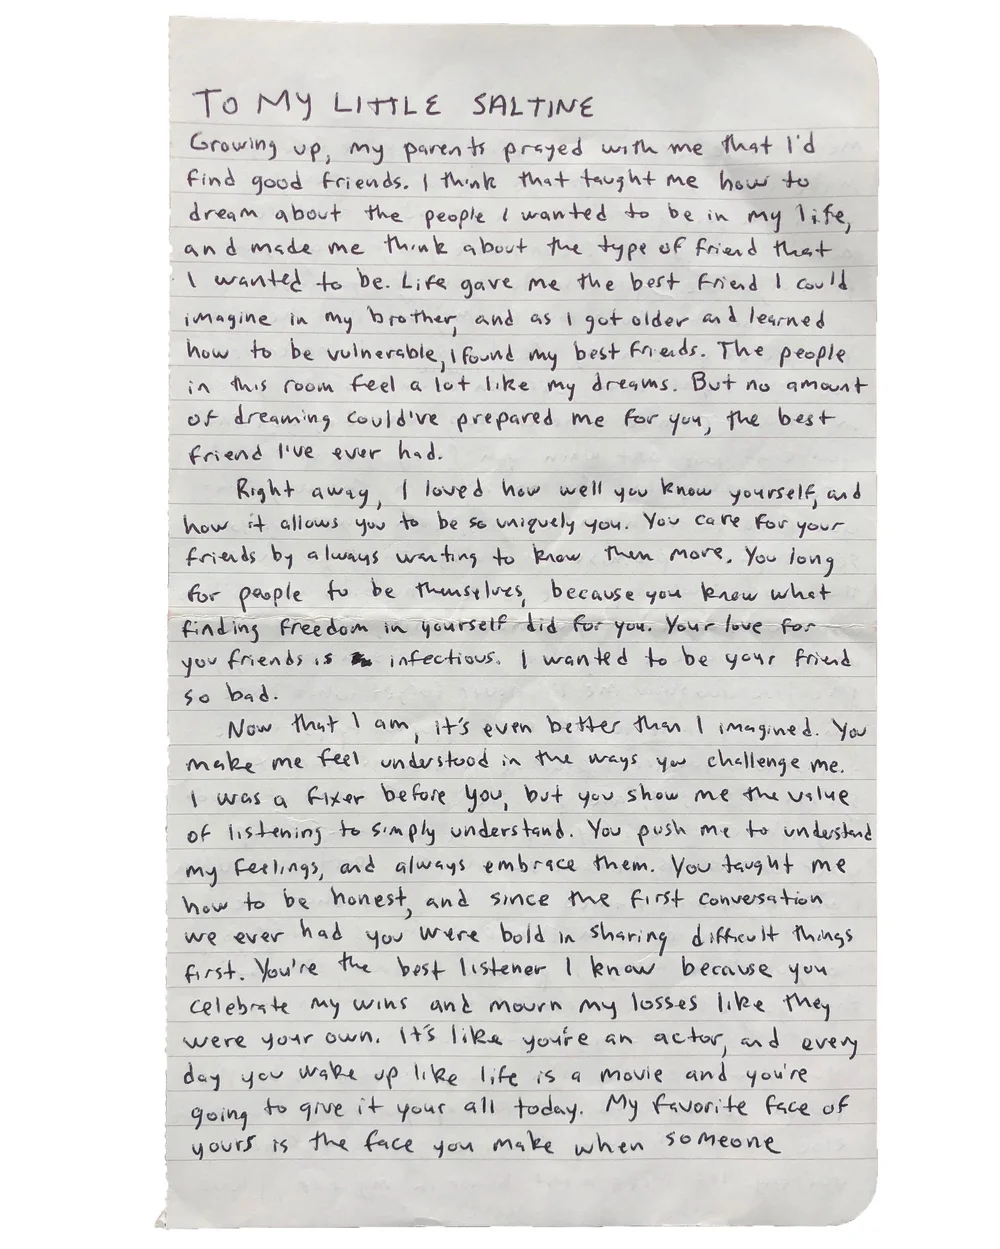 TO MY LITTLE SALTINE
Growing up, my parents prayed with me that I'd
find good friends. I think that taught me how to
dream about the people I wanted to be in my life,
and made me think about the type of friend that
I wanted to be. Life gave me the best friend I could
imagine in my brother, and as I got older and learned
how to be vulnerable, I found my best friends. The people
in this room feel a lot like my dreams. But no amount
of dreaming could've prepared me for you, the best
friend I've ever had.
Right away, I loved how well you know yourself, and
how it allows you to be so uniquely you. You care for your
friends by always wanting to know them more. You long
for people to be themselves, because you know what
finding freedom in yourself did for you. Your love for
you friends is infectious. I wanted to be your friend
so bad.
Now that I am, it's even better than I imagined. You
make me feel understood in the ways you challenge me.
I was a fixer before you, but you show me the value
of listening to simply understand. You push me to understand
my feelings, and always embrace them. You taught me
how to be honest, and since the first conversation
we ever had you were bold in sharing difficult things
first. You're the best listener I know because you
celebrate my wins and mourn my losses like they
were your own. It's like you're an actor, and every
day you wake up like life is a movie and you're
going to give it your all today. My favorite face of
yours is the face you make when someone